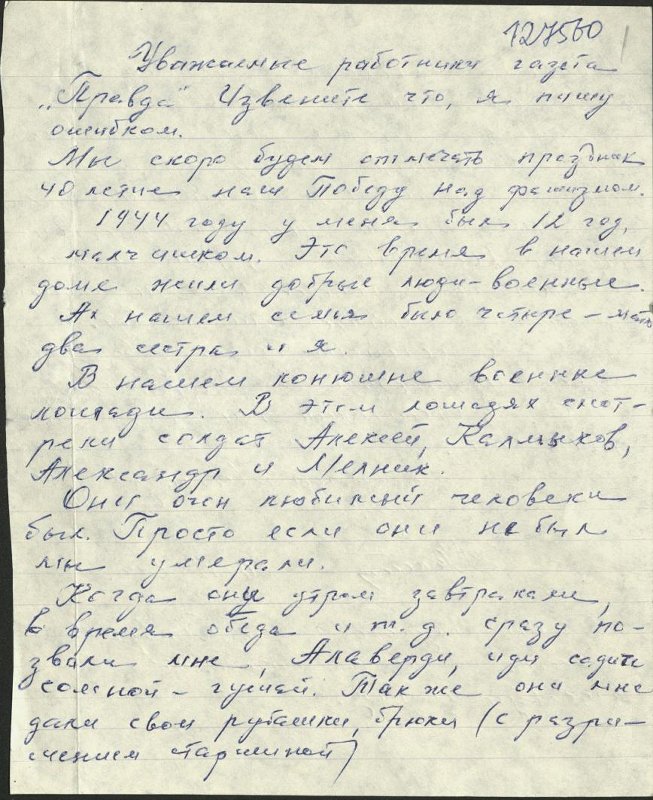 127560
Уважаемые работники газета
„Правда" Извените что, я пишу
ошибком.
Мы скоро будем отмечать празднак
40 летие наш Победу над фашизмом.
1944 году у меня был 12 год,
малчишком. Это время в нашем
доме жили добрые люди-военные.
Ах нашем семья было четыре – мать
два сестра и я.
В нашем конюшне военные
лошади. В этом лошадях смот-
рели солдат Алексей, Калмыков,
Александр и Мелник.
Они очен любимый человеки
был. Просто если они не был
мы умерали.
Когда они утром завтраками,
в время обеда и т.д. сразу по-
звали мне, Алаверди, иди садите
сомной – гушай. Также они мне
дали свои рубашки, брюки (с разри-
шением старшиной)